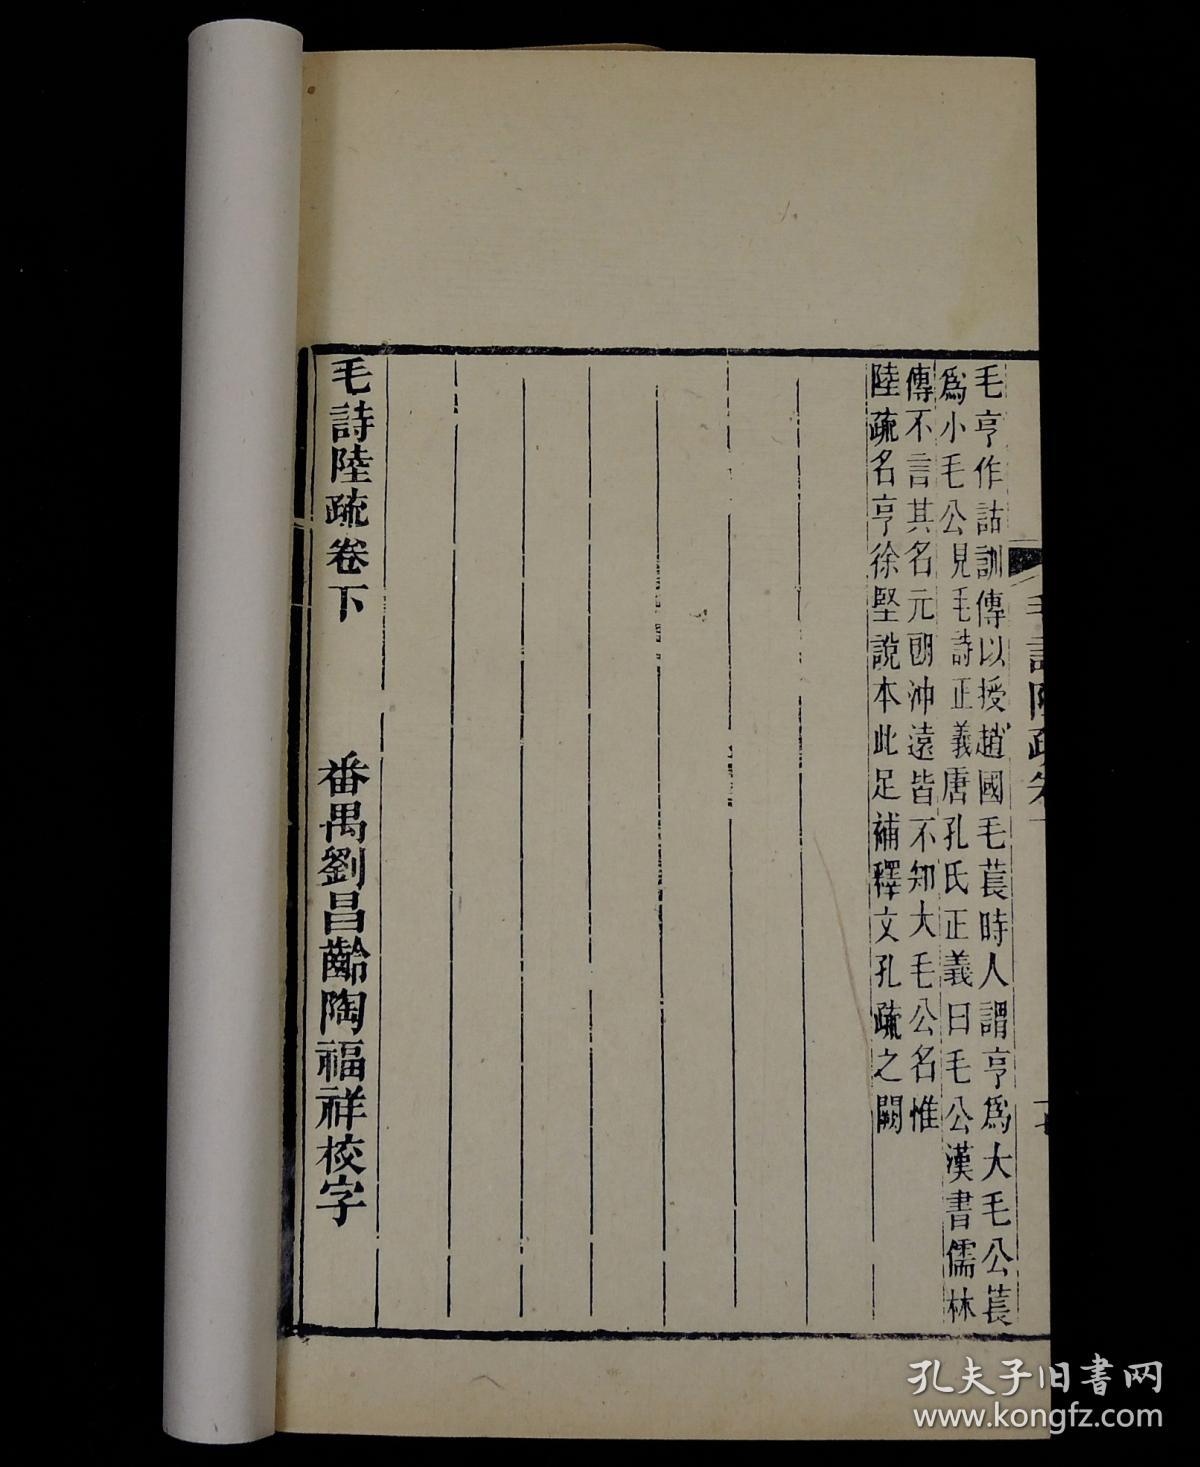 毛詩陸疏卷下
毛亨作詁訓傳以授趙國毛萇時人謂亨爲大毛公萇
爲小毛公見毛詩正義唐孔氏正義曰毛公漢書儒林
傳不言其名元朗沖遠皆不知大毛公名惟
陸疏名亨徐堅說本此足補釋文孔疏之闕
毛詩陸疏卷下
番禺劉昌齡陶福祥校字
孔夫子旧书网
www.kongfz.com